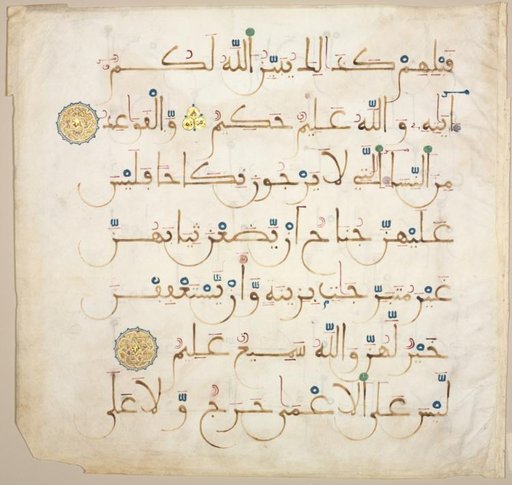 قَبْلِهِمْ كَذَٰلِكَ يُبَيِّنُ ٱللَّهُ لَكُمْ
ءَايَٰتِهِۦ وَٱللَّهُ عَلِيمٌ حَكِيمٌ وَٱلْقَوَٰعِدُ
مِنَ ٱلنِّسَآءِ ٱلَّٰتِى لَا يَرْجُونَ نِكَاحًا فَلَيْسَ
عَلَيْهِنَّ جُنَاحٌ أَن يَضَعْنَ ثِيَابَهُنَّ
غَيْرَ مُتَبَرِّجَٰتٍۭ بِزِينَةٍ وَأَن يَسْتَعْفِفْنَ
خَيْرٌ لَّهُنَّ وَٱللَّهُ سَمِيعٌ عَلِيمٌ
لَّيْسَ عَلَى ٱلْأَعْمَىٰ حَرَجٌ وَلَا عَلَى